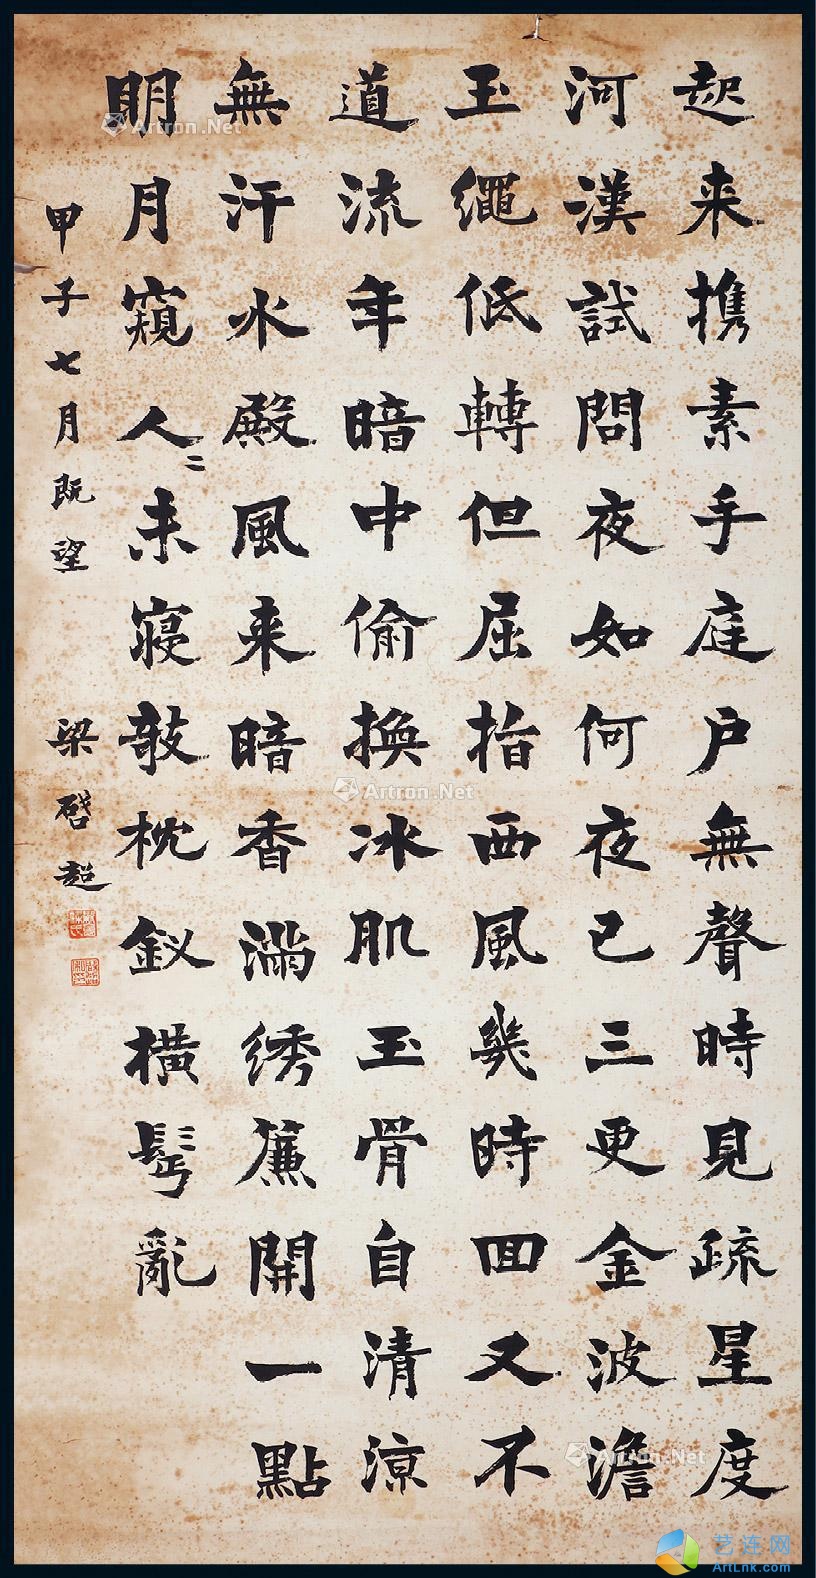 起来携素手庭户無聲時見疏星度
河漢試問夜如何夜已三更金波澹
玉繩低轉但屈指西風幾時囬又不
道流年暗中偷換冰肌玉骨自清涼
無汗水殿風来暗香滿绣簾開一點
明月窺人〻未寢敧枕釵橫鬢亂
甲子七月既望 梁啓超
Artron.Net
Artron.Net
Artron.Net
艺连网
ArtLnk.com